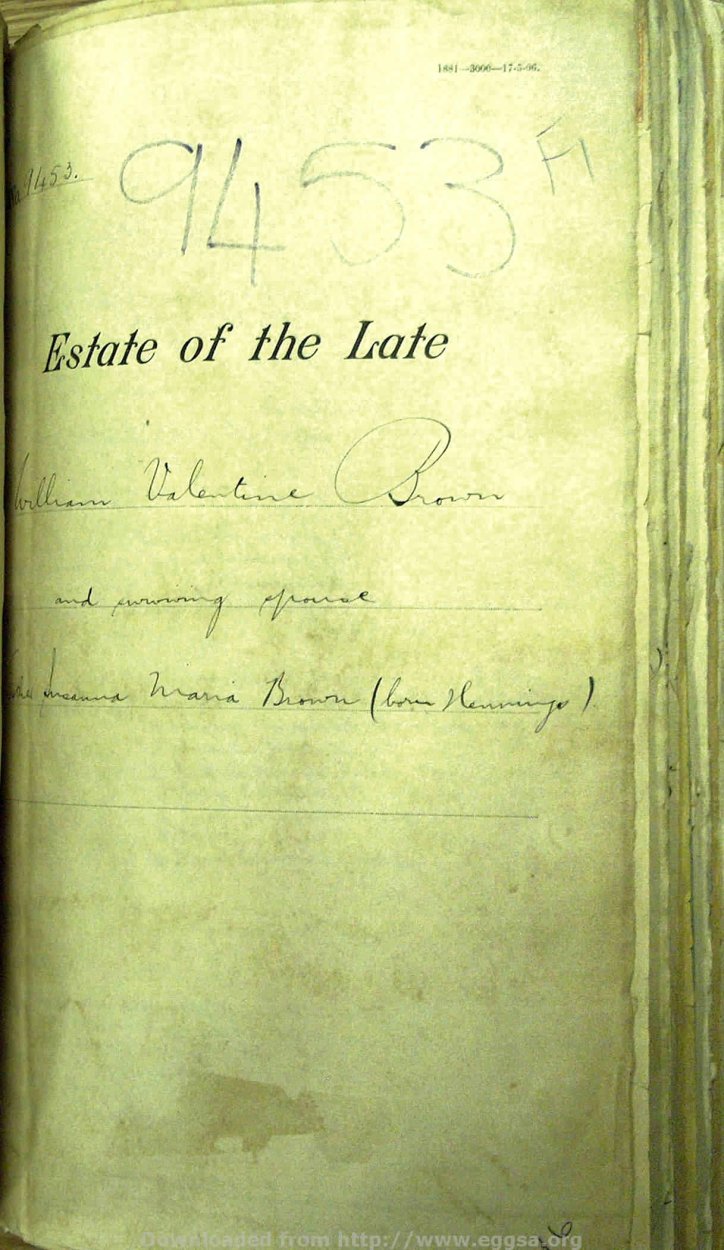 1881—3000—17-5-06.
9453 F1
No 9453.
Estate of the Late
William Valentine Brown
and surviving spouse
Susanna Maria Brown (born Hennings)
Downloaded from http://www.eggsa.org